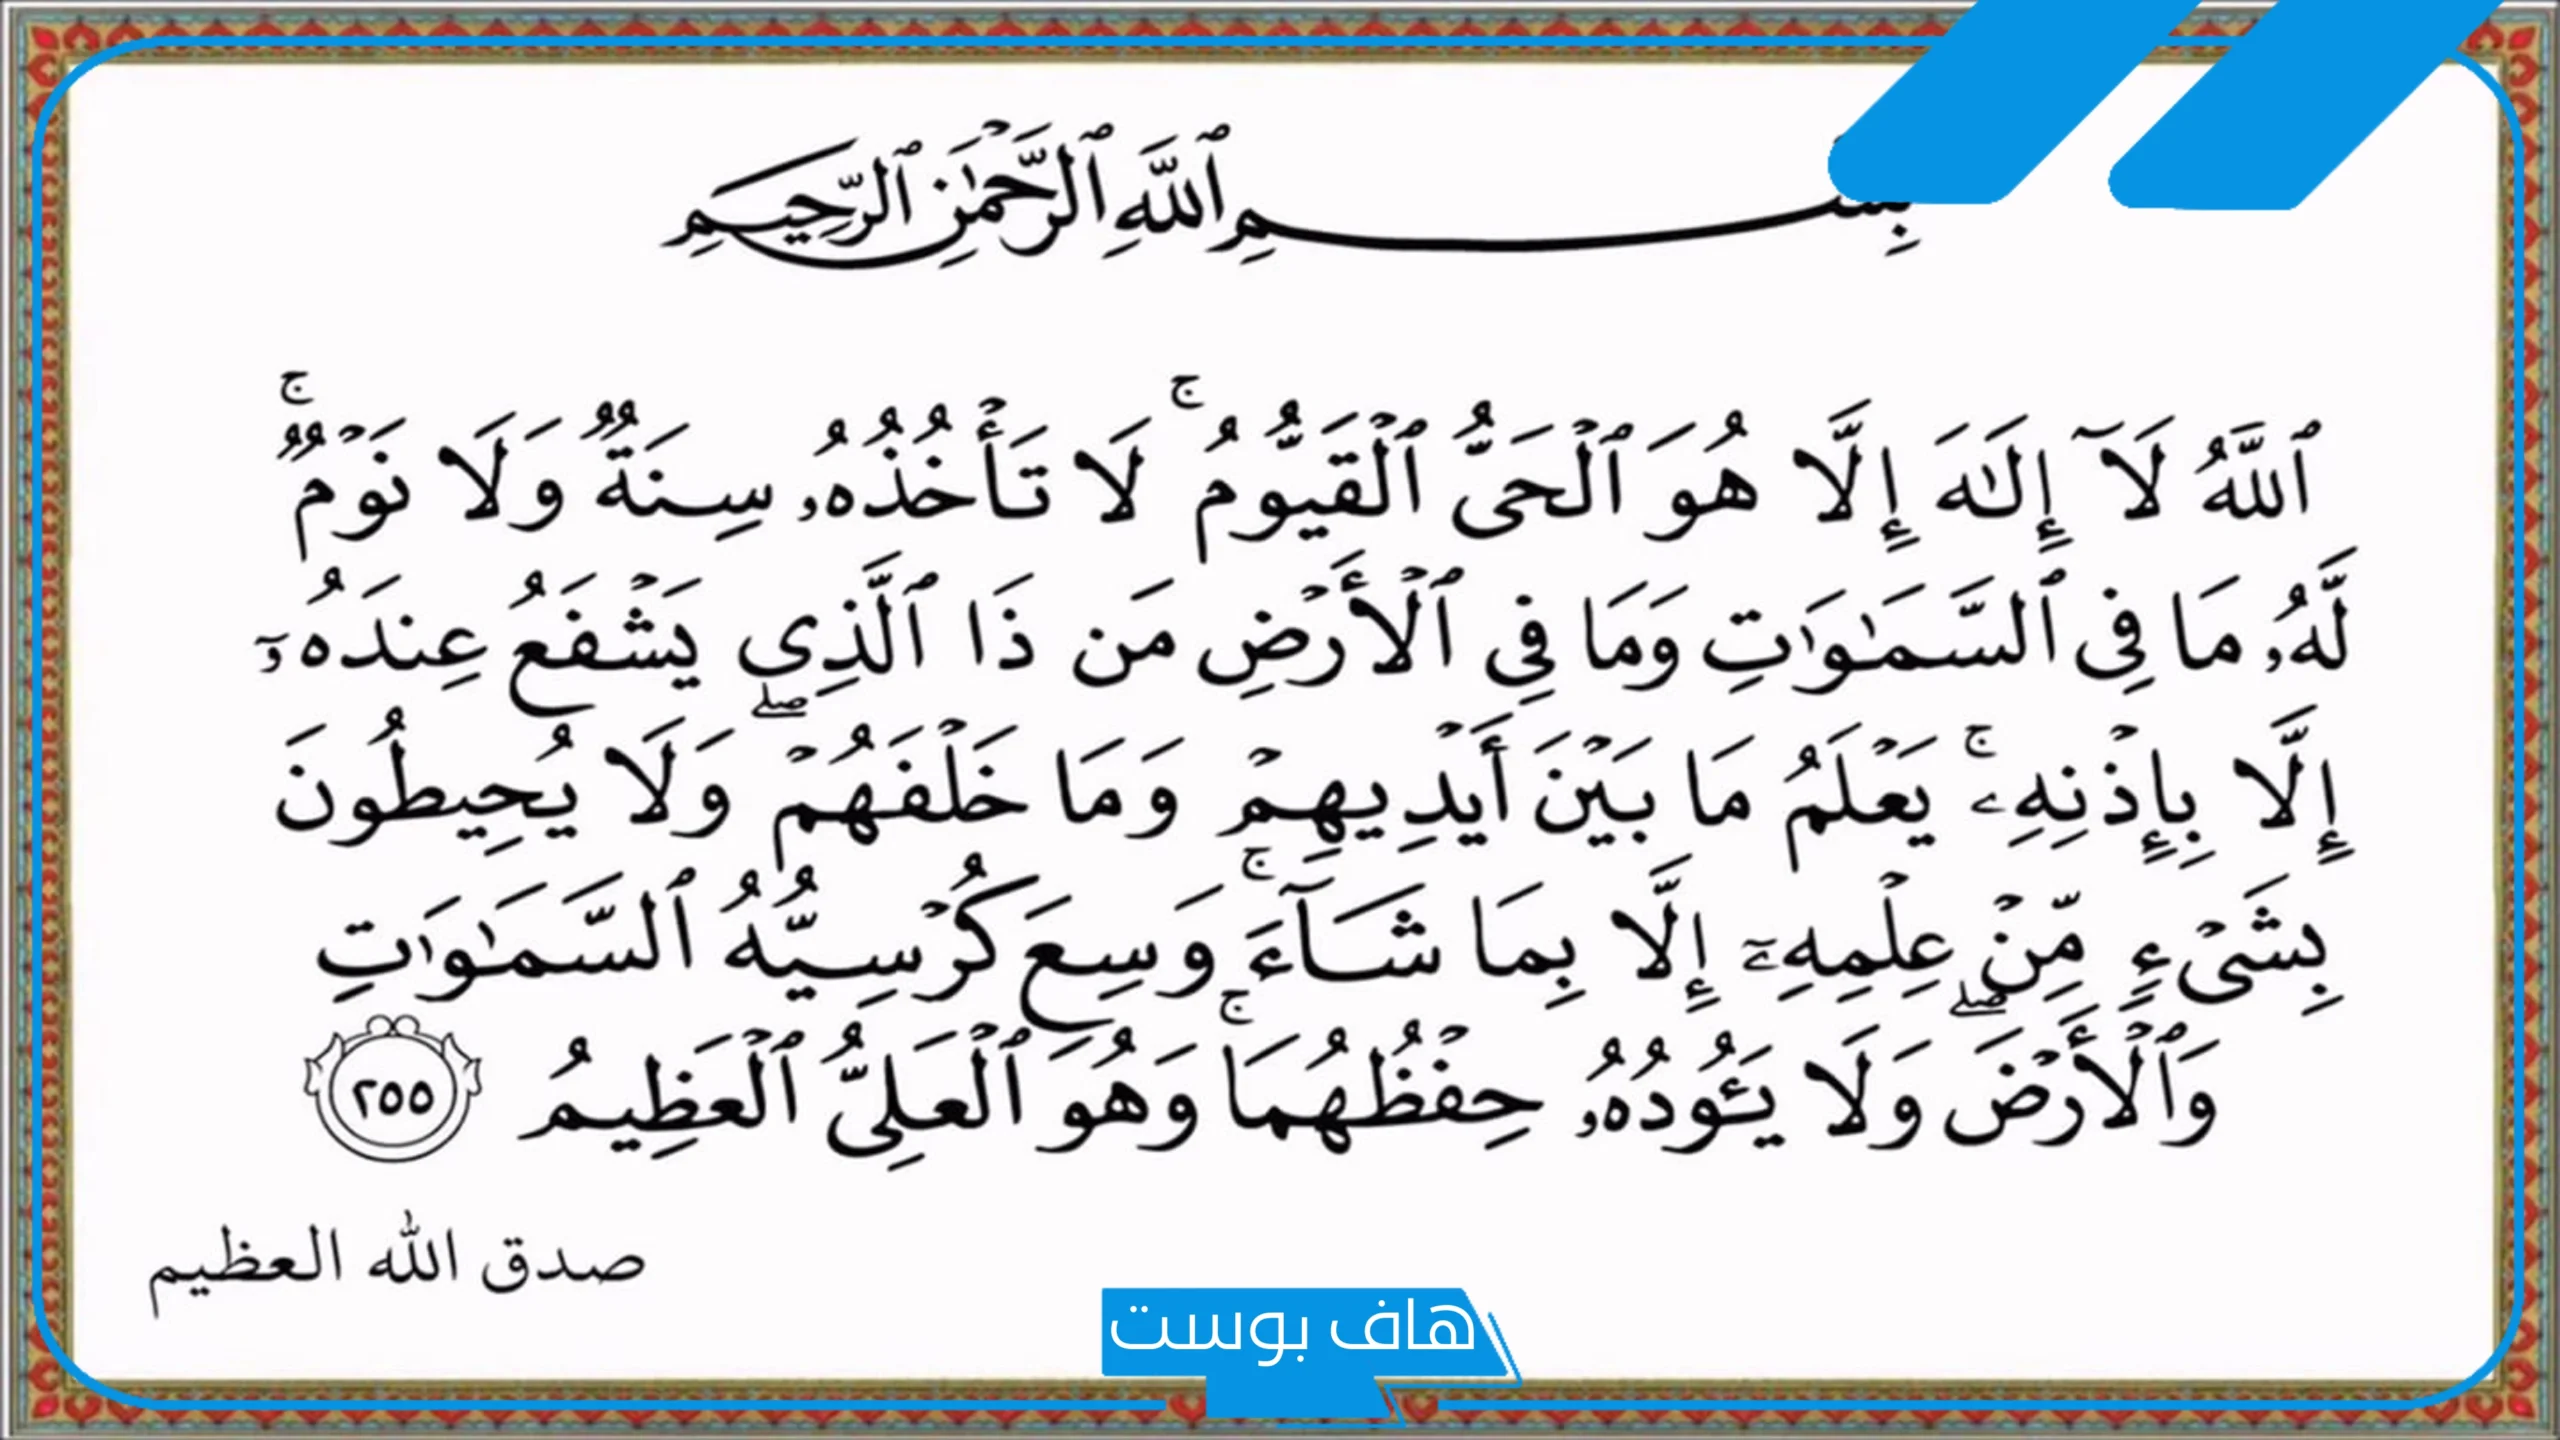 بِسْمِ ٱللَّهِ ٱلرَّحْمَٰنِ ٱلرَّحِيمِ
ٱللَّهُ لَآ إِلَٰهَ إِلَّا هُوَ ٱلْحَىُّ ٱلْقَيُّومُ ۚ لَا تَأْخُذُهُۥ سِنَةٌ وَلَا نَوْمٌ ۚ
لَّهُۥ مَا فِى ٱلسَّمَٰوَٰتِ وَمَا فِى ٱلْأَرْضِ مَن ذَا ٱلَّذِى يَشْفَعُ عِندَهُۥٓ
إِلَّا بِإِذْنِهِۦ ۚ يَعْلَمُ مَا بَيْنَ أَيْدِيهِمْ وَمَا خَلْفَهُمْ ۖ وَلَا يُحِيطُونَ
بِشَىْءٍ مِّنْ عِلْمِهِۦٓ إِلَّا بِمَا شَآءَ ۚ وَسِعَ كُرْسِيُّهُ ٱلسَّمَٰوَٰتِ
وَٱلْأَرْضَ ۖ وَلَا يَـُٔودُهُۥ حِفْظُهُمَا ۚ وَهُوَ ٱلْعَلِىُّ ٱلْعَظِيمُ ٢٥٥
صدق الله العظيم
هاف بوست